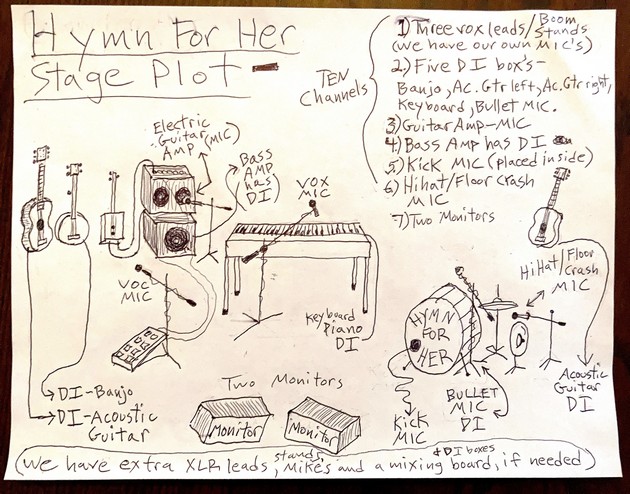 Hymn For Her
Stage Plot -
TEN
Channels
1) Three vox leads/Boom Stands
(we have our own MIC's)
2) Five DI box's-
Banjo, Ac. Gtr left, Ac. Gtr right,
Keyboard, Bullet MIC.
3) Guitar Amp-MIC
4) Bass Amp has DI
5) Kick MIC (placed inside)
6) Hihat/Floor crash
MIC
7) Two Monitors
Electric
Guitar
AMP (MIC)
Bass
AMP
(has
DI)
VOX
MIC
VOC
MIC
Keyboard
Piano
DI
HiHat/Floor
Crash
MIC
HYMN
FOR
HER
DI-Banjo
DI-Acoustic
Guitar
Two Monitors
Monitor
Monitor
Kick
MIC
BULLET
MIC
DI
Acoustic
Guitar
DI
(we have extra XLR leads, stands, Mikes and a mixing board, & DI boxes if needed)